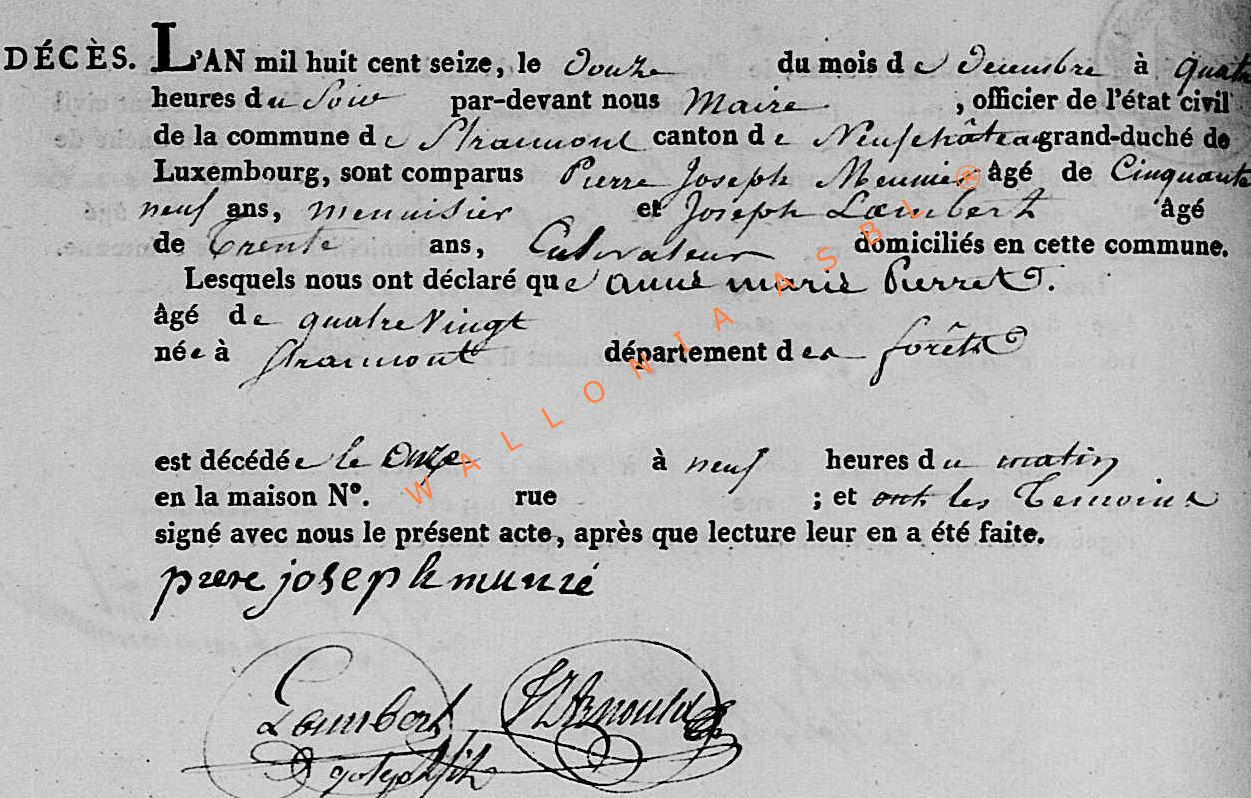 DÉCÈS. L'AN mil huit cent seize, le Douze du mois de Decembre à quatre
heures du Soir par-devant nous Maire , officier de l'état civil
de la commune de Straimont canton de Neufchâteau grand-duché de
Luxembourg, sont comparus Pierre Joseph Meunier âgé de Cinquante
neuf ans, menuisier et Joseph Lambert âgé
de Trente ans, Cultivateur domiciliés en cette commune.
Lesquels nous ont déclaré que anne marie Pierret.
âgé de quatre Vingt
née à Straimont département des forêts
est décédée le Onze à neuf heures du matin
en la maison N°. rue ; et ont les Temoins
signé avec nous le présent acte, après que lecture leur en a été faite.
piere joseph munié
Lambert Arnould
WALLONIA ASBL ®